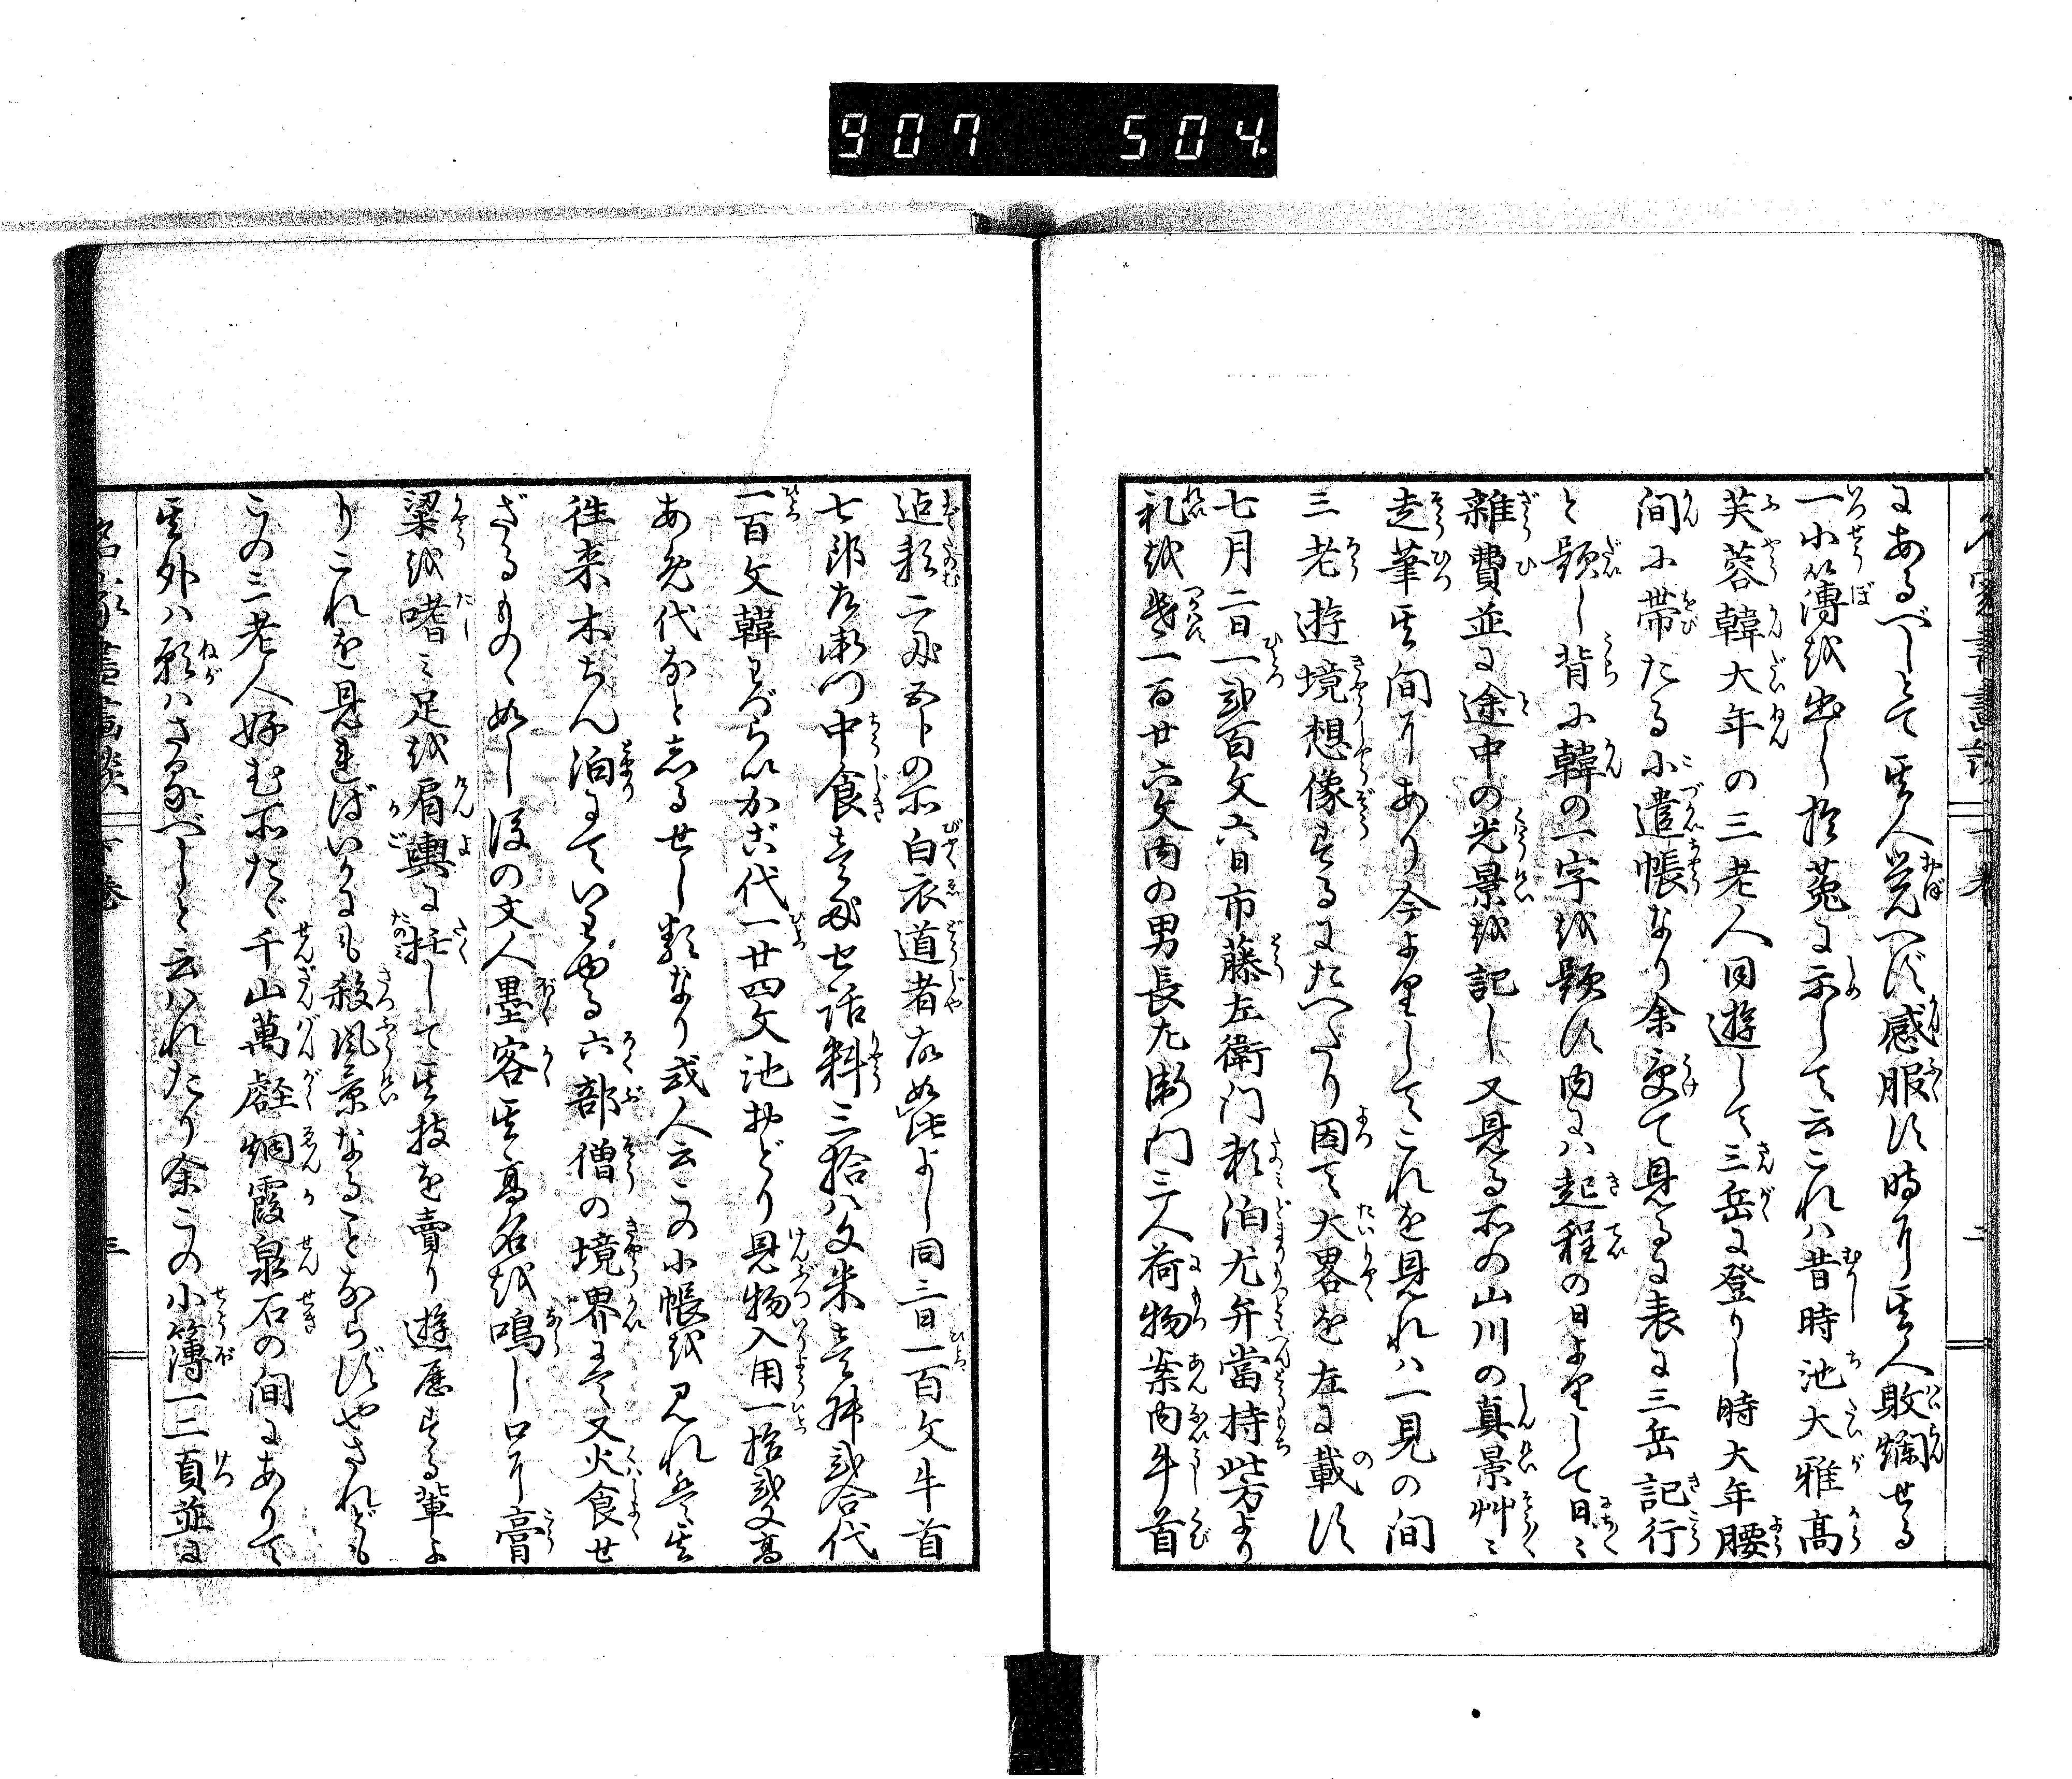 907 504
にあるべしとて其人覚へず感服す時に其人敗爛せる
一小簿を出し拙菴に示して云これハ昔時池大雅高
芙蓉韓大年の三老人同遊して三岳に登りし時大年腰
間に帯たる小遣帳なり余受て見るに表に三岳記行
と題し背に韓の一字を題す内にハ起程の日よりして日〻
雑費並に途中の光景を記し又見る所の山川の真景艸〻
走筆其間にあり今よりしてこれを見れハ一見の間
三老遊境想像するにたへたり因て大畧を左に載す
七月二日一弐百文六日市藤左衛门頼泊尤弁當持此方より
礼を遣一百廿六文内の男長左衛门三人荷物案内牛首
迄頼二及五卜の所白衣道者故如此よし同三日一百文牛首
七郎左衛门中食世話料三拾八文米壱升弐合代
一百文韓わづらいかご代一廿四文池おどり見物入用一拾弐文高
あめ代などと志るせし類なり或人云この小帳を見れば其
徃来木ちん泊にていはゆる六部僧の境界にて又火食せ
ざるもの〻如し後の文人墨客其高名を鳴し口に膏
粱を嗜ミ足を肩輿に托して其技を賣り遊歴する輩よ
りこれを見ればいかにも殺風景なることならずやされども
この三老人好む所たゞ千山萬壑烟霞泉石の間にありて
其外ハ願ハさるべしと云はれたり余この小簿一二頁並に
名家書畫談 下巻 三